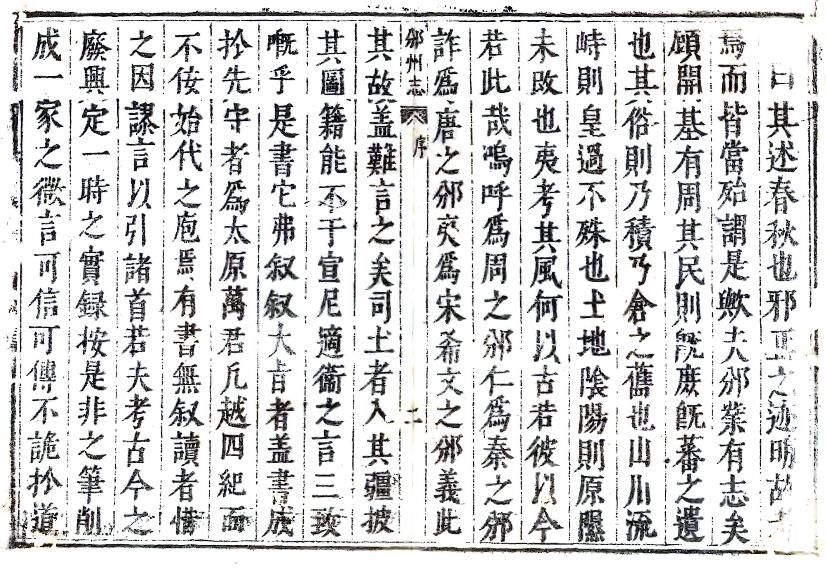 曰其述春秋也邪正之迹明故
焉而皆當殆謂是歟夫邠業有志矣
頋開基有周其民則旣庶旣蕃之遺
也其俗則乃積乃倉之舊也山川流
峙則皇過不殊也土地陰陽則原隰
未改也夷考其風何以古若彼以今
若此哉嗚呼爲周之邠仁爲秦之邠
詐爲唐之邠爲宋希文之邠義此
邠州志 序 二
其故盖難言之矣司土者入其疆披
其圖籍能不于宣尼適衞之言三致
嘅乎是書它弗叙叙大㫖者盖書成
扵先守者爲太原萬君凢越四紀而
不佞始代之庖焉有書無叙讀者惜
之因謬言以引諸首若夫考古今之
廢興定一時之實録按是非之筆削
成一家之微言可信可傳不詭扵道